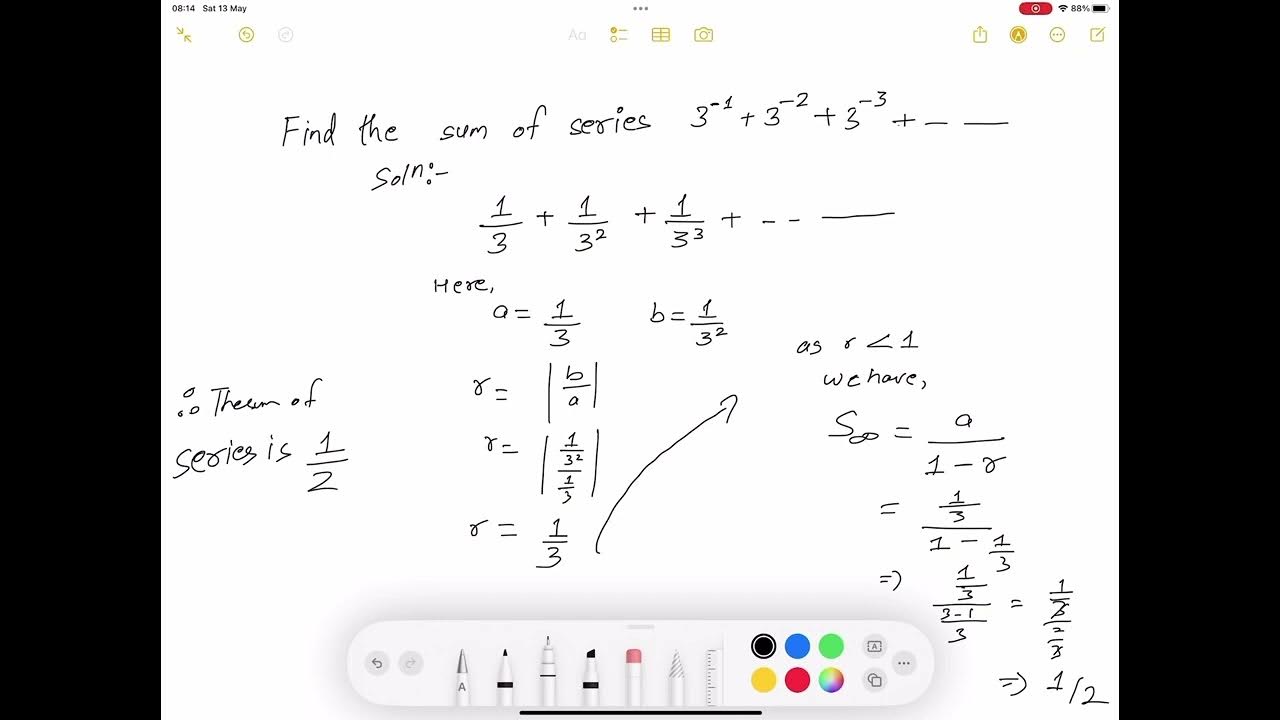 08:14 Sat 13 May
88%
Aa
Find the sum of series 3⁻¹ + 3⁻² + 3⁻³ + - —
Solⁿ:-
1/3 + 1/3² + 1/3³ + - - —
Here,
a = 1/3 b = 1/3²
r = |b/a|
r = |(1/3²)/(1/3)|
r = 1/3
as r < 1
we have,
S∞ = a/(1 - r)
= (1/3)/(1 - 1/3)
=> (1/3)/((3-1)/3) = (1/3)/(2/3)
=> 1/2
∴ The sum of
series is 1/2
A
A